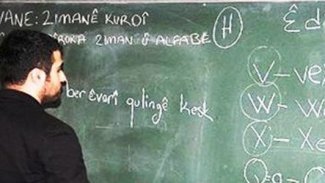 WANE: ZIMANÊ KURDÎ
ZIMAN Û ALFABE
H
ber êvarî qulingê kesk
Ê d
V-ve
W-W
X-Xe